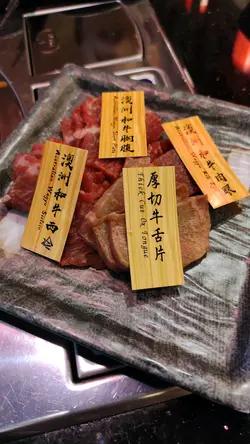 澳洲和牛胸腹
澳洲和牛肉眼
澳洲和牛西冷
Australian Wagyu Sirloin
厚切牛舌片
Thick Cut Ox Tongue